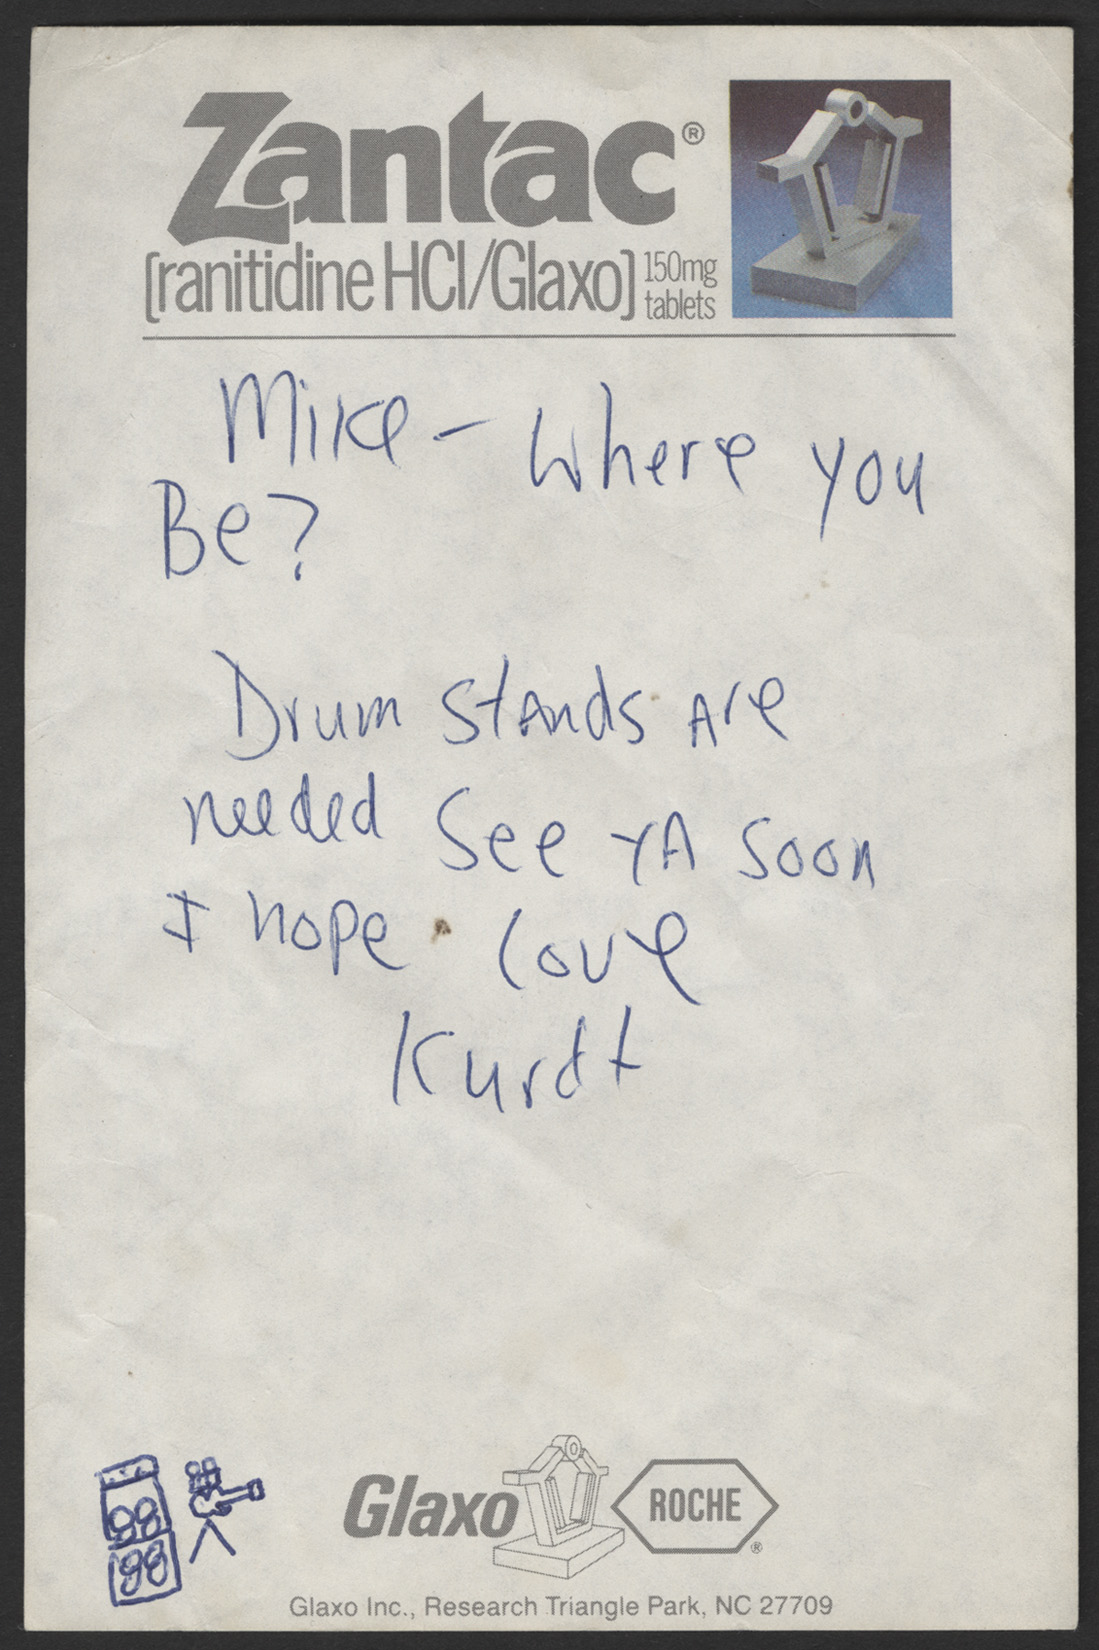 Zantac®
[ranitidine HCl/Glaxo] 150mg tablets
Mike - Where you
Be?
Drum stands Are
needed See YA Soon
I hope. Love
Kurdt
Glaxo ROCHE®
Glaxo Inc., Research Triangle Park, NC 27709